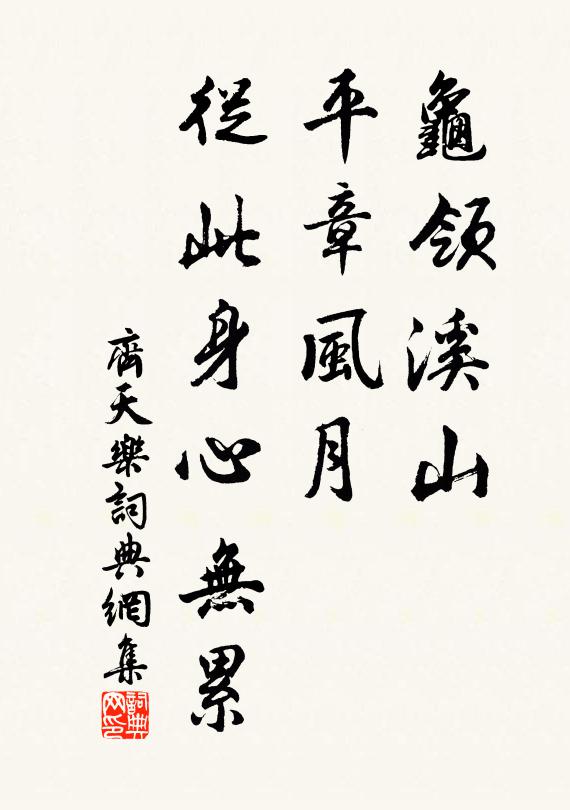 龜領溪山
平章風月
從此身心無累
齊天樂詞典網集
詞典網印